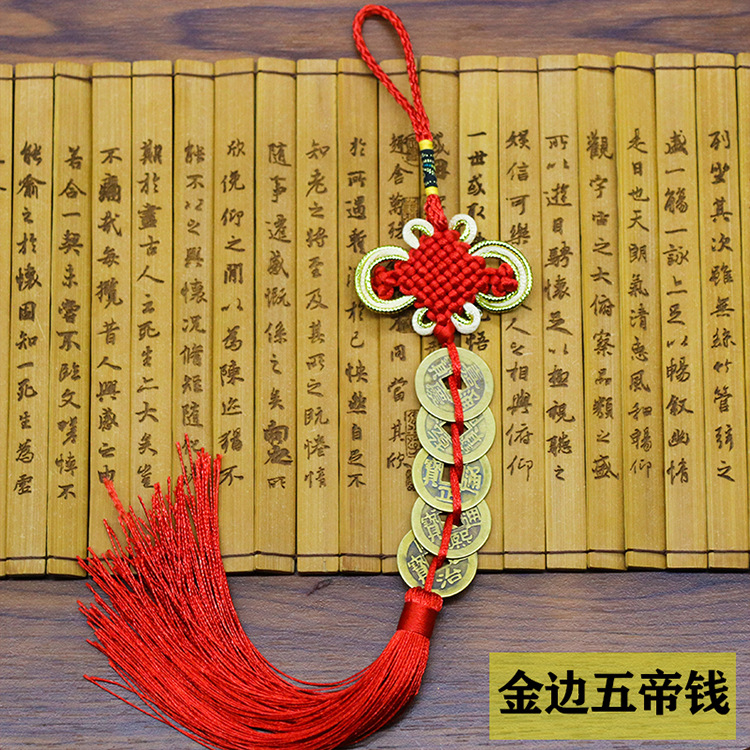 列坐其次雖無絲竹管弦之
盛一觴一詠亦足以暢敘幽情
是日也天朗氣清惠風和暢仰
觀宇宙之大俯察品類之盛
所以遊目騁懷足以極視聽之
娛信可樂
之相與俯仰
一世或取
悟
趣舍萬殊
同當其欣
於所遇
於己怏然自足不
知老之將至及其所之既惓情
隨事遷感慨係之矣向之所
欣俛仰之間以為陳迹猶不
能不以之興懷況脩短隨化
期於盡古人云死生亦大矣豈
不痛哉每攬昔人興感之由
若合一契未嘗不臨文嗟悼不
能喻之於懷固知一死生為虛
通寶
熙通寶
治寶
金边五帝钱